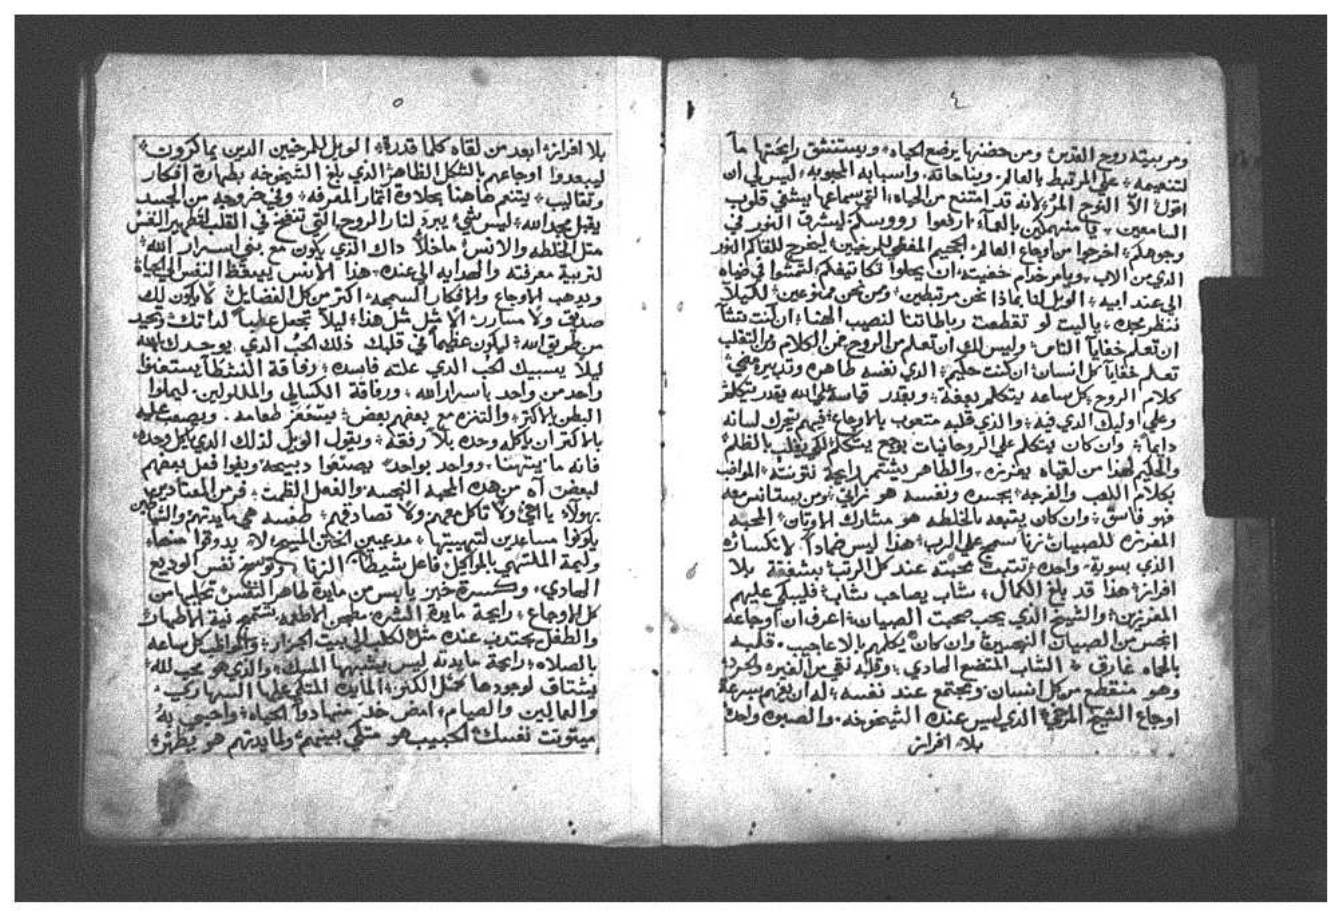 ٤
ومربيته روح القدس ومن حضنها يرضع الحياه ويستنشق رايحتها ما
لتنعيمه على المرتبط بالعالم وبناحاته واسبابه المحبوبه ليس لي ان
اقول الا النوح المر لانه قد امتنع من الحياه التي سماعها يشفي قلوب
السامعين يا منهمكين بالعما ارفعوا رووسكم ليشرق النور في
وجوهكم اخرجوا من اوجاع العالم ليخرج للقاكم النور
الذي من الاب ويامر خدام خفيته ان يحلوا تكاتيفكم لتمشوا في ضياه
الي عند ابيه الويل لنا بماذا نحن مرتبطين ومن نحن ممنوعين لكيلا
ننظر مجده ياليت لو تقطعت رباطاتنا ان كنت تشآ
ان تعلم خفايا الناس وليس لك ان تعلم من الروح فمن الكلام ومن التقلب
تعلم خفايا كل انسان ان كنت حكيم الذي نفسه طاهره وتدبيره
كلام الروح كل ساعه يتكلم بعفة وبقدر قياسه علي الله يقدر يتكلم
وعلي اوليك الذي فيه والذي قلبه متعوب بالاوجاع فيهم يتحرك لسانه
دايما وان كان يتكلم علي الروحانيات بوجع يتكلم لكي يغلب بالظلم
والحكيم لهذا من لقياه يفرزه والطاهر يشتم رايحة نتونته المواضب
بكلام اللعب والفرجه بجسده ونفسه هو زاني ومن يستانس معه
فهو فاسق وان كان يتبعه بالخلطه هو مشارك الاوتان المحبه
المفرزه للصبيان زنا سمج علي الرب هذا ليس ضمادا لانكساره
الذي بسوية واحده تتبت محبته عند كل الرتب بشفقة بلا
افراز هذا قد بلغ الكمال شاب يصاحب شاب فليبكي عليهم
المفرزين والشيخ الذي يحب صحبت الصبيان اعرف ان اوجاعه
انجس من الصبيان النجسين وان كان يكلمهم بالاعاجيب قلبه
بالحماه غارق الشاب المتضع الهادي وقلبه نقي من الغيره والحرد
وهو منقطع من كل انسان ويجتمع عند نفسه له ان يفهم بسرعة
اوجاع الشيخ المرخي الذي ليس عنده الشيخوخه والصبوه واحده
بلا افراز
٥
بلا افراز ابعد من لقاه كلما قدرة الويل للمرخيين الدين يماكرون
ليبعدوا اوجاعهم بالشكل الظاهر الذي بلغ الشيخوخه بطهارة افكار
وتقاليب يتنعم هاهنا بحلاوة اتمار المعرفه وفي خروجه من الجسد
يقبل مجد الله ليس شي يبرد لنار الروح التي تنفخ في القلب لتطهير النفس
متل الخلطه والانس ماخلا داك الذي يكون مع بني اسرار الله
لتربية معرفته والهدايه الي عنده هذا الانس ييقظ النفس الي الحياة
ويدهب الاوجاع والافكار السمجه اكتر من كل الفضايل لا يكون لك
صديق ولا مسارر الا مثل هذا ليلا تجعل عطبا لداتك وتحيد
من طريق الله ليكون عظيما في قلبك ذلك الحب الدي يوحدك بالله
ليلا يسبيك الحب الدي علته فاسده رفاقة النشطا يستغنوا
واحد من واحد باسرار الله ورفاقة الكسالي والمدلولين ليملوا
البطن بالاكتر والتنزه مع بعضهم بعض يستحقر طعامه ويصعب عليه
بالاكتر ان ياكله وحده بلا رفقة ويقول الويل لذلك الدي ياكل وحده
فانه ما يتهنا وواحد بواحد يصنعوا دبيحة ويفوا فعل بعضهم
لبعض آه من هده المحبه النجسه والفعل الظمت فر من المعتادين
بهولاء يا اخي ولا تاكل معهم ولا تصادقهم طفسه هي مايدتهم والشياطين
يكونوا مساعدين لتهييتها مدعيين الختن المسيح لا يدوقوا منها
وليمة الملتهي بالمواكيل فاعل شيطان الزنا وتوسخ نفس الوديع
الهادي وكسرة خبز يابس من مايدة طاهر النفس تجليها من
كل الاوجاع رايحة مايدة الشره الاطعمه تشتم
والطفل يجتدب عنده متل الكلب الي بيت الجزار والمواظب كل ساعه
بالصلاه رايحة مايدته ليس يشبهها المسك والذي هو محب لله
يشتاق لوجودها كمتل الكنز المايدة المتكي عليها السهارى
والعمالين والصيام امض خد منها دوا الحياه واحيي به
ميتوتت نفسك الحبيب هو متكي بينهم ولمايدتهم هو يطهر